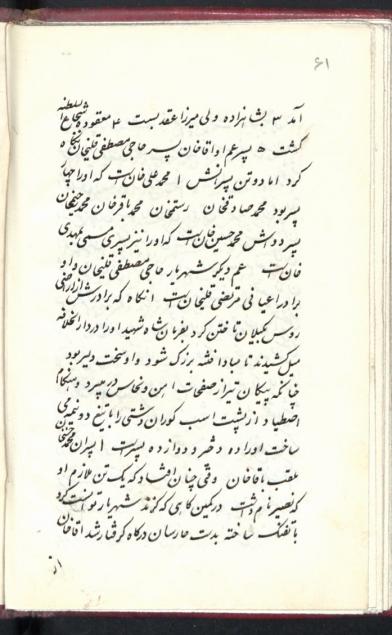 ۶۱
آمد ۳ بشاهزاده ولی میرزا عقد بست ۴ معقوده شجاع السلطنه
گشت ۵ پسر عم او آقاخان پسر حاجی مصطفی قلیخان
کرد اما دو تن پسرانش ۱ محمد علی خان است که او را چهار
پسر بود محمد صادقخان رستمخان محمد باقرخان محمد
پسر دوش محمد حسین خان است که او را نیز پسری مسمی بمهدی
خان است عم دیگر شهریار حاجی مصطفی قلیخان و او
برادر اعیانی مرتضی قلیخان است آنگاه که برادرش از اراضی
روس بگیلان تاختن کرد بفرمان شاه شهید او را در دار الخلافه
میل کشیدند تا مبادا فتنه بزرگ شود و او سخت دلیر بود
چنانکه پیکان تیر از صفحات آهن و نحاس در میبرد و هنگام
اصطیاد از پشت اسب کوران دشتی را با تیغ دو نیمه می
ساخت او را ده دختر و دوازده پسر است ۱ پسران
ملقب بآقاخان وقتی چنان افتاد که یک تن ملازم او
که نصیر نام داشت در کمین گاهی که گزند شهریار توانست کرد
با تفنگ ساخته بدست حارسان درگاه گرفتار شد آقاخان
از